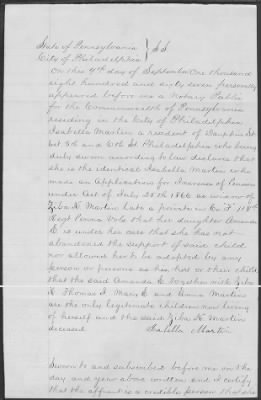 State of Pennsylvania } SS
City of Philadelphia
On this 4th day of September One thousand
eight hundred and sixty seven personally
appeared before me a Notary Public
for the Commonwealth of Pennsylvania
residing in the City of Philadelphia
Isabella Martin a resident of Dauphin St
bet 5th and 6th St. Philadelphia who being
duly sworn according to law declares that
she is the identical Isabella Martin who
made an Application for Increase of Pension
under Act of July 25th 1866 as widow of
Ziba K. Martin late a private in Co. F. 118th
Regt Penna Vols that her daughter Amanda
E is under her care that she has not
abandoned the support of said child
nor allowed her to be adopted by any
person or persons as his her or their child
that the said Amanda E. together with Ziba
K. Thomas J. Mary E and Emma Martin
are the only legitimate children now living
of herself and the said Ziba K. Martin
deceased Isabella Martin
Sworn to and subscribed before me on the
day and year above written and I certify
that the affiant is a credible person that she